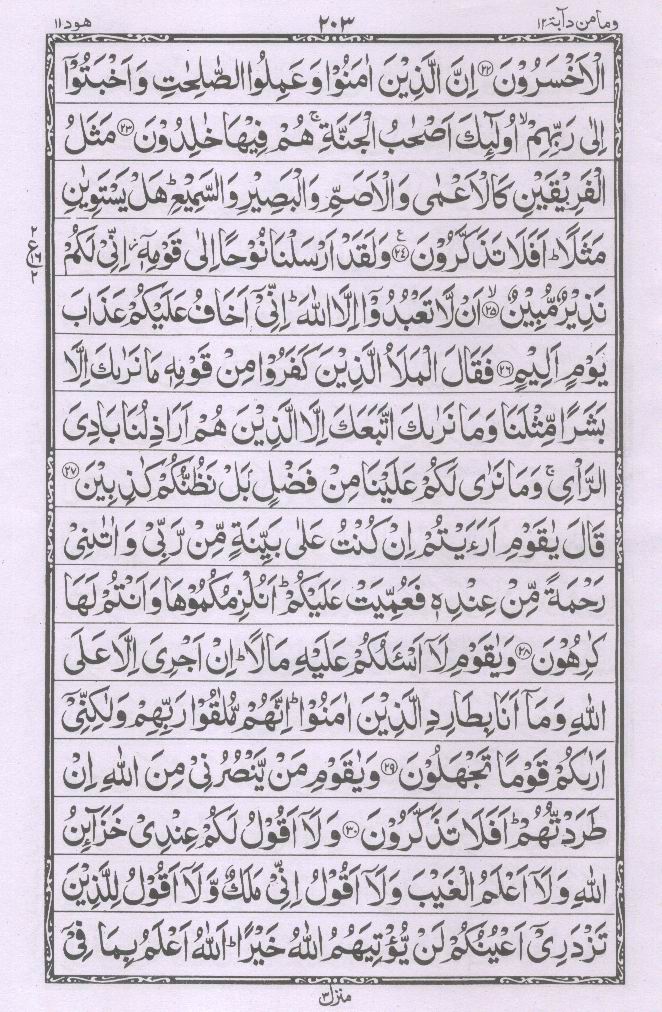 وما من دآبة ١٢
٢٠٣
هود ١١
الْاَخْسَرُوْنَ ۝۲۲ اِنَّ الَّذِيْنَ اٰمَنُوْا وَعَمِلُوا الصّٰلِحٰتِ وَاَخْبَتُوْٓا
اِلٰى رَبِّهِمْ ۙ اُولٰٓئِكَ اَصْحٰبُ الْجَنَّةِ ۚ هُمْ فِيْهَا خٰلِدُوْنَ ۝۲۳ مَثَلُ
الْفَرِيْقَيْنِ كَالْاَعْمٰى وَالْاَصَمِّ وَالْبَصِيْرِ وَالسَّمِيْعِ ؕ هَلْ يَسْتَوِيٰنِ
مَثَلًا ؕ اَفَلَا تَذَكَّرُوْنَ ۝۲۴ع وَلَقَدْ اَرْسَلْنَا نُوْحًا اِلٰى قَوْمِهٖٓ ؗ اِنِّيْ لَكُمْ
۲ ع ۱۶ ۲
نَذِيْرٌ مُّبِيْنٌ ۝۲۵ۙ اَنْ لَّا تَعْبُدُوْٓا اِلَّا اللّٰهَ ؕ اِنِّيْٓ اَخَافُ عَلَيْكُمْ عَذَابَ
يَوْمٍ اَلِيْمٍ ۝۲۶ فَقَالَ الْمَلَاُ الَّذِيْنَ كَفَرُوْا مِنْ قَوْمِهٖ مَا نَرٰىكَ اِلَّا
بَشَرًا مِّثْلَنَا وَمَا نَرٰىكَ اتَّبَعَكَ اِلَّا الَّذِيْنَ هُمْ اَرَاذِلُنَا بَادِيَ
الرَّاْيِ ۚ وَمَا نَرٰى لَكُمْ عَلَيْنَا مِنْ فَضْلٍۭ بَلْ نَظُنُّكُمْ كٰذِبِيْنَ ۝۲۷
قَالَ يٰقَوْمِ اَرَءَيْتُمْ اِنْ كُنْتُ عَلٰى بَيِّنَةٍ مِّنْ رَّبِّيْ وَاٰتٰىنِيْ
رَحْمَةً مِّنْ عِنْدِهٖ فَعُمِّيَتْ عَلَيْكُمْ ؕ اَنُلْزِمُكُمُوْهَا وَاَنْتُمْ لَهَا
كٰرِهُوْنَ ۝۲۸ وَيٰقَوْمِ لَآ اَسْـَٔلُكُمْ عَلَيْهِ مَالًا ؕ اِنْ اَجْرِيَ اِلَّا عَلَى
اللّٰهِ وَمَآ اَنَا بِطَارِدِ الَّذِيْنَ اٰمَنُوْا ؕ اِنَّهُمْ مُّلٰقُوْا رَبِّهِمْ وَلٰكِنِّيْٓ
اَرٰىكُمْ قَوْمًا تَجْهَلُوْنَ ۝۲۹ وَيٰقَوْمِ مَنْ يَّنْصُرُنِيْ مِنَ اللّٰهِ اِنْ
طَرَدْتُّهُمْ ؕ اَفَلَا تَذَكَّرُوْنَ ۝۳۰ وَلَآ اَقُوْلُ لَكُمْ عِنْدِيْ خَزَآئِنُ
اللّٰهِ وَلَآ اَعْلَمُ الْغَيْبَ وَلَآ اَقُوْلُ اِنِّيْ مَلَكٌ وَّلَآ اَقُوْلُ لِلَّذِيْنَ
تَزْدَرِيْٓ اَعْيُنُكُمْ لَنْ يُّؤْتِيَهُمُ اللّٰهُ خَيْرًا ؕ اَللّٰهُ اَعْلَمُ بِمَا فِيْٓ
منزل ٣